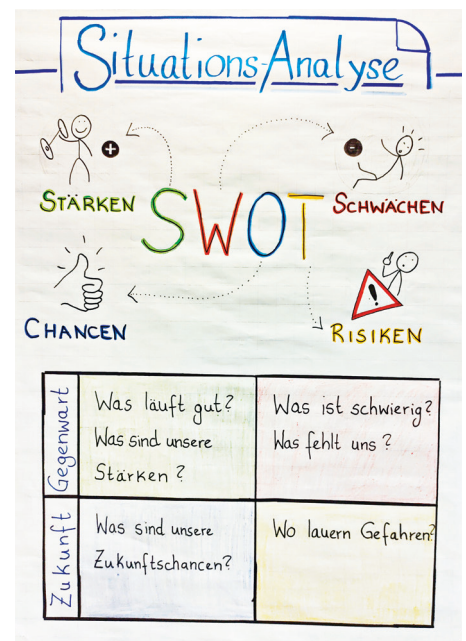 Situations-Analyse
+
-
STÄRKEN
SWOT
SCHWÄCHEN
!
CHANCEN
RISIKEN
Gegenwart
Was läuft gut?
Was sind unsere
Stärken?
Was ist schwierig?
Was fehlt uns?
Zukunft
Was sind unsere
Zukunftschancen?
Wo lauern Gefahren?